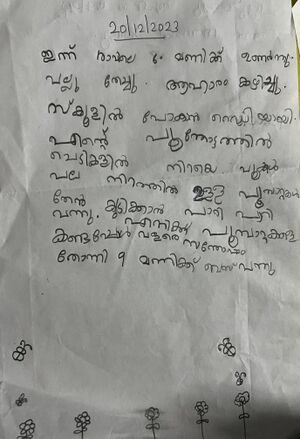 20/12/2023
ഇന്ന് രാവിലെ 6 മണിക്ക് ഉണർന്നു.
പല്ലു തേച്ചു. ആഹാരം കഴിച്ചു.
സ്കൂളിൽ പോകാൻ റെഡിയായി.
എന്റെ പൂന്തോട്ടത്തിൽ
ചെടികളിൽ നിറയെ പൂക്കൾ
പല നിറത്തിൽ ഉള്ള പൂമ്പാറ്റകൾ
തേൻ കുടിക്കാൻ പാറി പാറി
വന്നു. എനിക്ക് പൂമ്പാറ്റകളെ
കണ്ടപ്പോൾ വളരെ സന്തോഷം
തോന്നി 9 മണിക്ക് ബസ് വന്നു